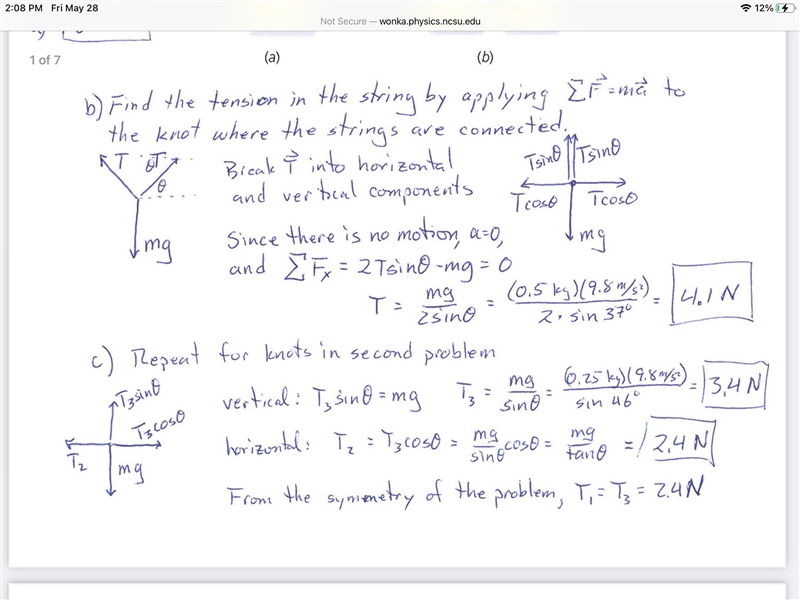 2:08 PM Fri May 28
12%
Not Secure — wonka.physics.ncsu.edu
1 of 7
(a) (b)
b) Find the tension in the string by applying ΣF⃗=ma⃗ to
the knot where the strings are connected.
T θT θ mg
Break T⃗ into horizontal
and vertical components
Tsinθ Tsinθ
Tcosθ Tcosθ
mg
Since there is no motion, a=0,
and ΣFx = 2Tsinθ-mg = 0
T = mg/2sinθ = (0.5 kg)(9.8 m/s²)/2 · sin 37° = 4.1 N
c) Repeat for knots in second problem
T3sinθ
T3cosθ
T2 mg
vertical: T3 sinθ = mg T3 = mg/sinθ = (0.25 kg)(9.8 m/s²)/sin 46° = 3.4 N
horizontal: T2 = T3cosθ = mg/sinθ cosθ = mg/tanθ = 2.4 N
From the symmetry of the problem, T1 = T3 = 2.4 N